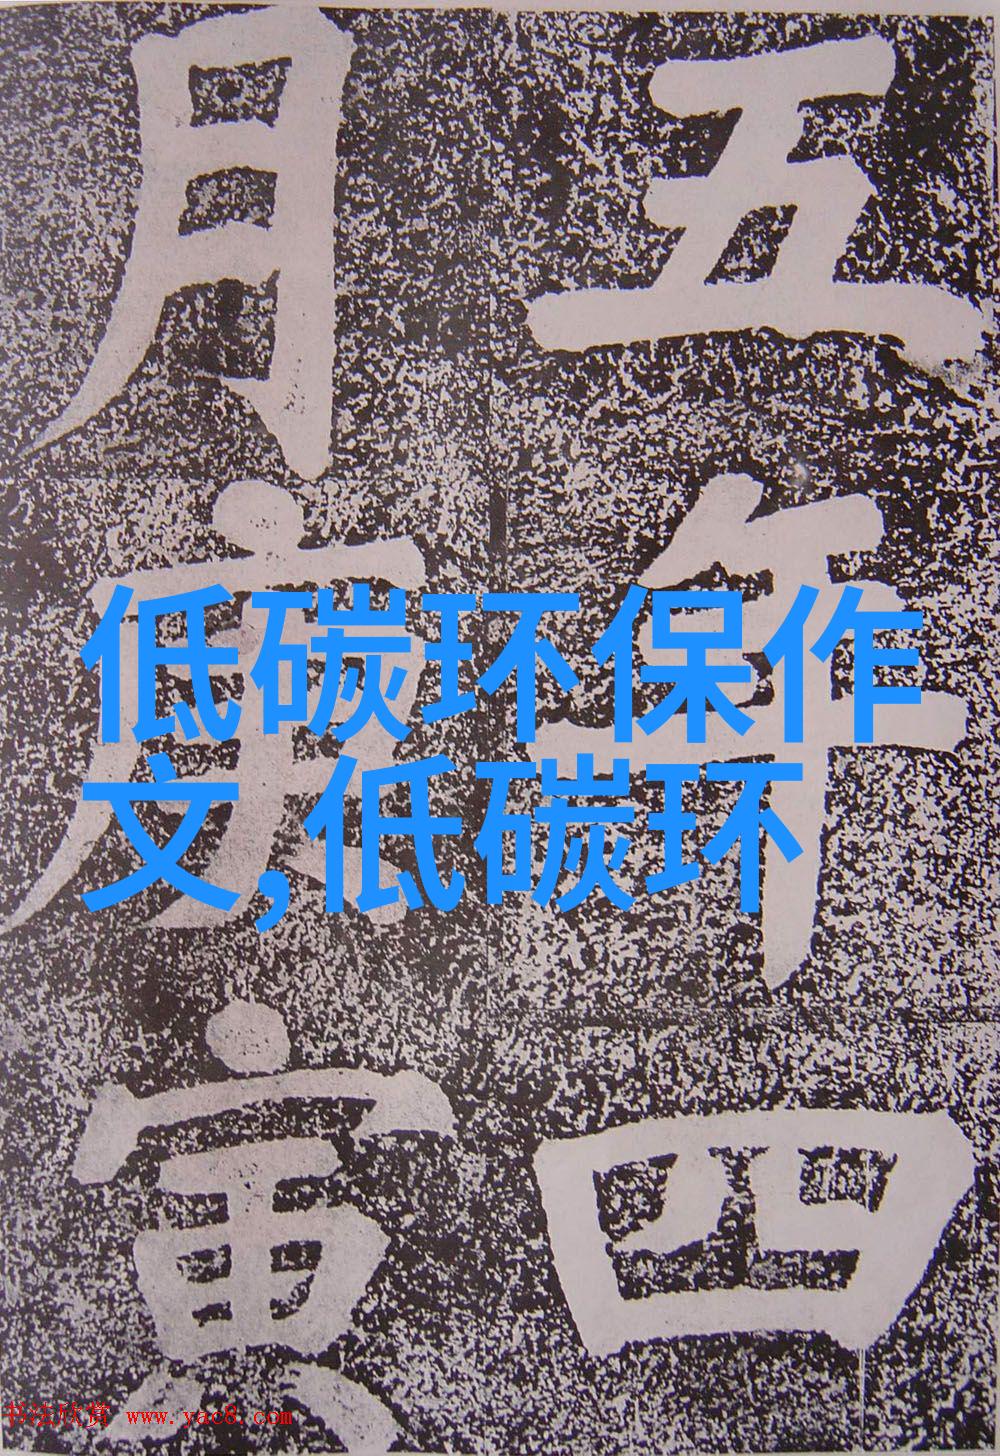 五年四
月庚寅
低碳环保作
文,低碳环
书法欣赏 www.yac8.com